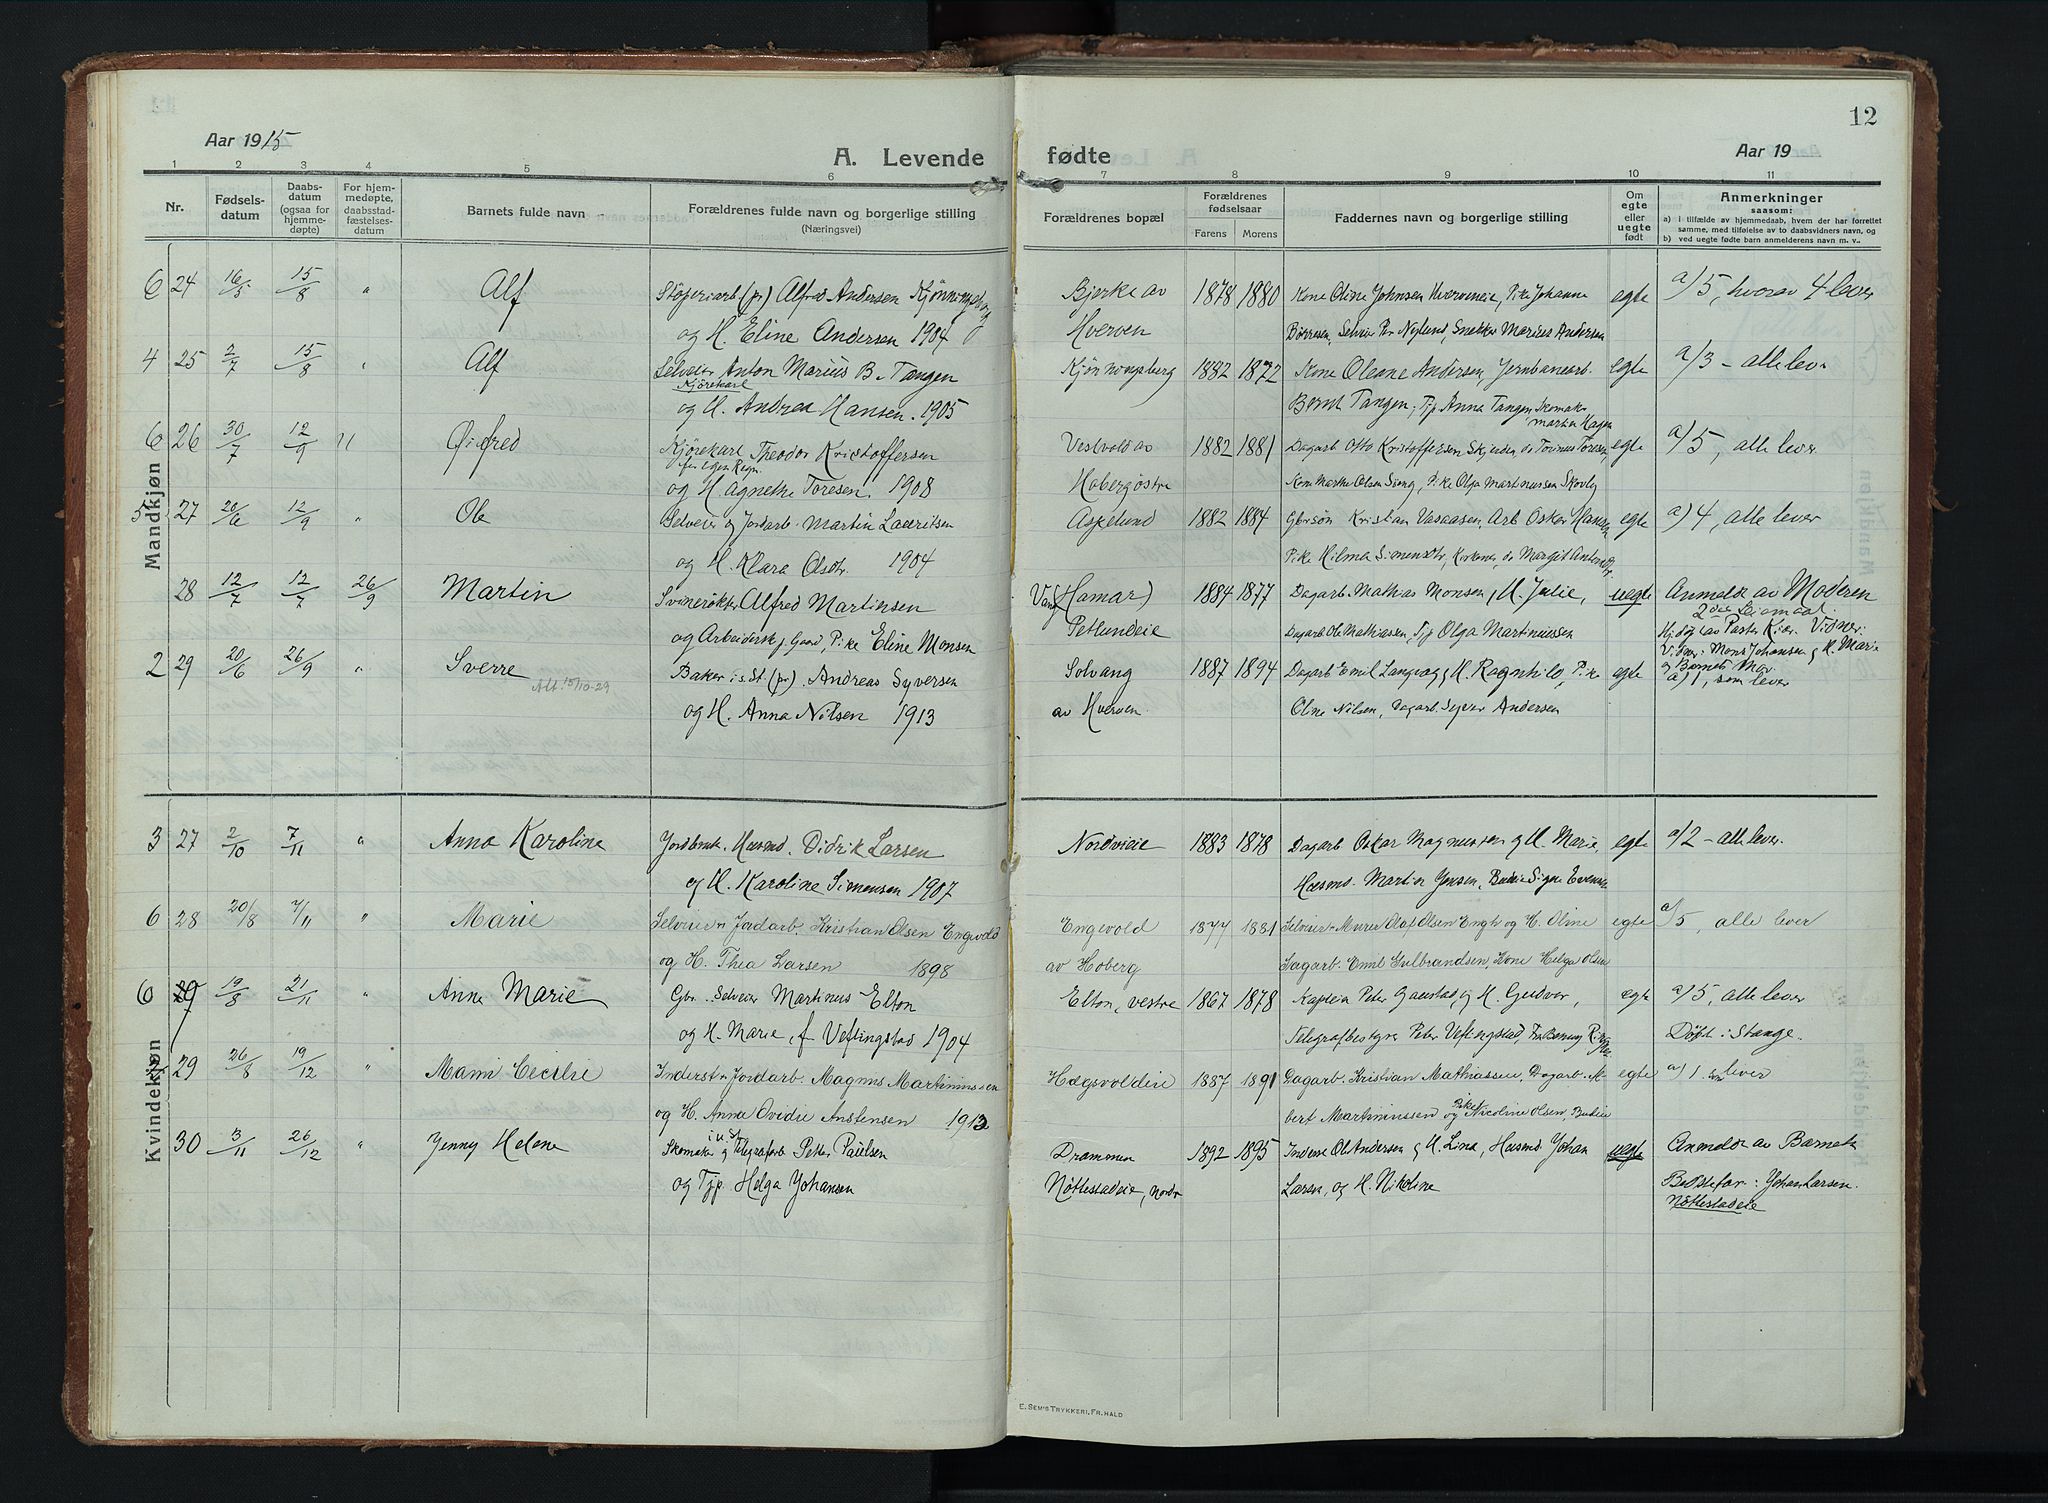 12
Aar 1915
A. Levende fødte
Aar 19
1 2 3 4 5 6 7 8 9 10 11
Nr.
Fødsels-
datum
Daabs-
datum
(ogsaa for
hjemme-
døpte)
For hjem-
medøpte,
daabsstad-
fæstelses-
datum
Barnets fulde navn
Forældrenes fulde navn og borgerlige stilling
(Næringsvei)
Forældrenes bopæl
Forældrenes
fødselsaar
Farens Morens
Faddernes navn og borgerlige stilling
Om
egte
eller
uegte
født
Anmerkninger
saasom:
a) I tilfælde av hjemmedaab, hvem der har forrettet
samme, med tilføielse av to daabsvidners navn, og
b) ved uegte fødte barn anmelderens navn m. v..
Mandkjøn
6 24 16/5 15/8 " Alf Støperiarb. (pr) Alfred Andersen Kjønningsberg Bjerke av 1878 1880 Kone Oline Johnsen Hverveneie, Pike Johanne egte a/5, hvorav 4 lever
og H. Eline Andersen 1904 Hverven Børresen, Selveier Per Nylund, Snekker Marius Andersen
4 25 2/7 15/8 " Alf Selveier Anton Marius B. Tangen Kjønningsberg 1882 1872 Kone Oleane Andersen, Jernbanearb. egte a/3 - alle lever
Kjørekarl
og H. Andrea Hansen. 1905 Bernt Tangen, Tjp Anna Tangen, Skomaker
Martin Hagen
6 26 30/7 12/9 " Øifred Kjørekarl Theodor Kristoffersen Vestvold av 1882 1881 Dagarb Otto Kristoffersen Skjerden, do Torinus Toresen, egte a/5, alle lever
for egen Regn.
og H. Agnethe Toresen. 1908 Hoberg østre Kone Marthe Olsen Sveng, Pike Olga Martinussen Skovly
5 27 20/6 12/9 " Ole Selveier og Jordarb. Martin Lauritsen Aspelund 1882 1884 Gbrsøn Kristian Vasaasen, Arb Oskar Hansen egte a) 4, alle lever
og H. Klara Olsdtr. 1904 Pike Hilma Simensdtr, do Margit Antonsdtr
28 12/7 12/7 26/9 Martin Svinerøkter Alfred Martinsen Vang (Hamar) 1884 1877 Dagarb. Mathias Monsen og H. Julie, uegte Anmeldt av Moderen
2den Leiermaal.
og Arbeidersk p. Gaard, Pike Eline Monsen Petlundeie Dagarb Ole Mathiassen, Tjp Olga Martinussen Hjdøpt av Pastor Kiær. Vidner:
Mons Johansen og H. Marie
og Barnets Mor.
2 29 20/6 26/9 " Sverre Baker i s. St. (pr). Andreas Syversen Solvang 1887 1894 Dagarb Emil Langvag og H. Ragnhild, Pike egte a) 1, som lever
Att. 15/10-29
og H. Anna Nilsen 1913 av Hverven Oline Nilsen, Dagarb. Syver Andersen
Kvindekjøn
3 27 2/10 7/11 " Anna Karoline Jordbruk. Husmd. Didrik Larsen Nordvieie 1883 1878 Dagarb Oskar Magnussen og H. Marie, egte a/2 - alle lever.
og H. Karoline Simensen 1907 Husmd. Martin Jensen, Budeie Signe Evensen
6 28 20/8 7/11 " Marie Selveier & Jordarb. Kristian Olsen Engvold Engevold 1877 1881 Selveier & Murer Olaf Olsen Engh og H. Oline egte a/5, alle lever
og H. Thea Larsen 1898 av Hoberg Dagarb. Emil Gulbrandsen, Kone Helga Olsen
6 19/8 21/11 " Anna Marie Gbr. Selveier Martinus Elton Elton, vestre 1867 1878 Kaptein Peter Gaustad og H. Gudvor, egte a/5, alle lever
og H. Marie, f Veflingstad 1904 Telegrafbestyrer Peter Veflingstad, Døbt i Stange.
29 26/8 19/12 " Mami Cecilie Inderst & Jordarb. Magnus Martinussen Hægsvoldeie 1887 1891 Dagarb. Kristian Mathiassen, Dagarb. egte a) 1 som lever
og H. Anna Ovidie Anstensen 1913 bert Martinussen og Pike Nicoline Olsen, Budeie
30 3/11 26/12 " Jenny Helene Skomaker og Telegrafarb Petter Paulsen Drammen 1892 1895 Inderst Ol Andersen og H. Lina, Husmd Johan uegte Anmeldt av Barnets
i u. St.
og Tjp. Helga Johansen Nöttestadeie, nordr Larsen, og H. Nikoline Bedstefar: Johan Larsen.
Nöttestadeie
E. SEM'S TRYKKERI, FR.HALD